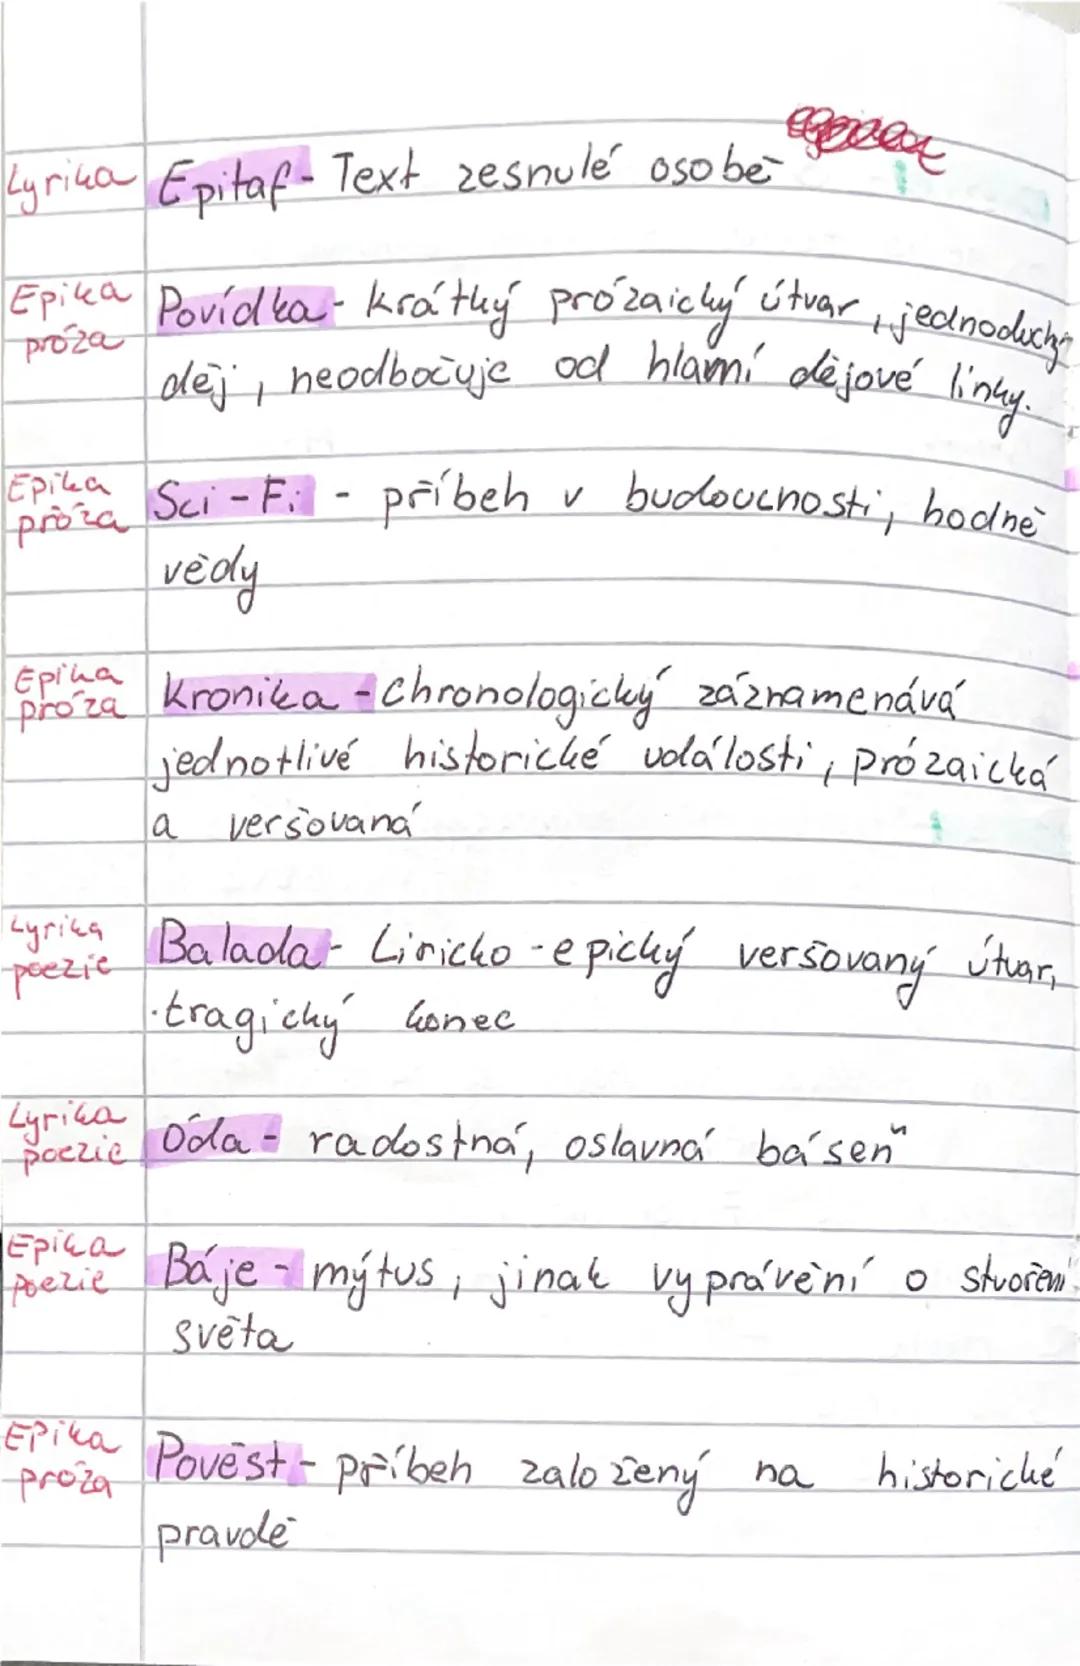 Lyrika Epitaf - Text zesnulé osobě
Epika Povídka - krátký prózaický útvar, jednoduchý
próza děj, neodbočuje od hlavní dějové linky.
Epika Sci-Fi - příběh v budoucnosti, hodně
próza vědy
Epika Kronika - Chronologický záznamenává
próza jednotlivé historické události, prózaická
a veršovaná
Lyrika Balada - Liricko-epický veršovaný útvar,
poezie tragický konec
Lyrika Óda - radostná, oslavná báseň
poezie
Epika Báje - mýtus, jinak vyprávění o stvoření
poezie světa
Epika Pověst - příběh založený na historické
próza pravdě